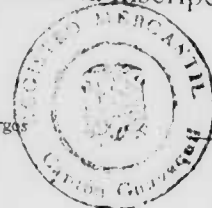 REGISTRO MERCANTIL
rgos
Canton Guayaquil